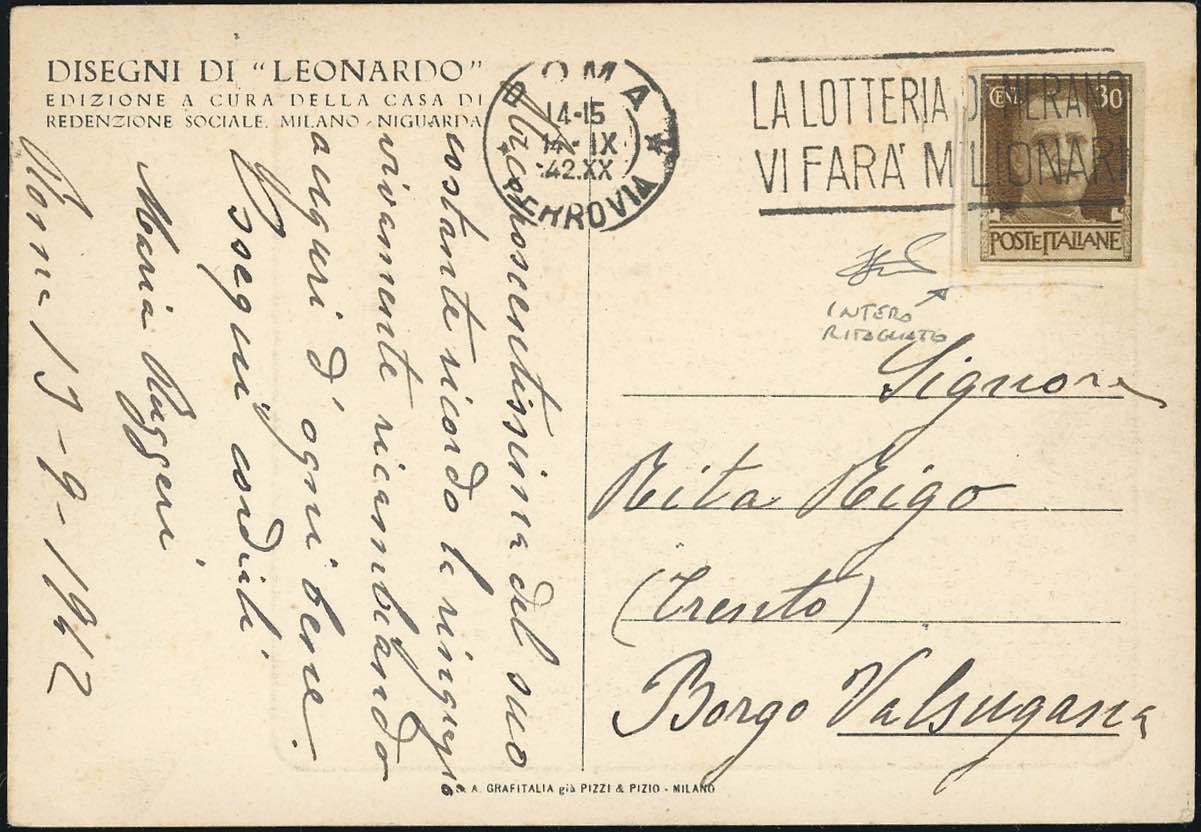 DISEGNI DI "LEONARDO"
EDIZIONE A CURA DELLA CASA DI
REDENZIONE SOCIALE. MILANO - NIGUARDA
ROMA
14-15
14 - IX
42.XX
FERROVIA
LA LOTTERIA DI MERANO
VI FARA' MILIONARI
CENT. 30
POSTE ITALIANE
INTERO
RITAGLIATO
Riconoscentissima del suo
costante ricordo la ringrazio
vivamente ricambiando
auguri d' ogni bene.
Ossequi cordiali
Maria Ruggeri
Roma 13-9-1942
Signora
Rita Rigo
(Trento)
Borgo Valsugana
S. A. GRAFITALIA già PIZZI & PIZIO - MILANO